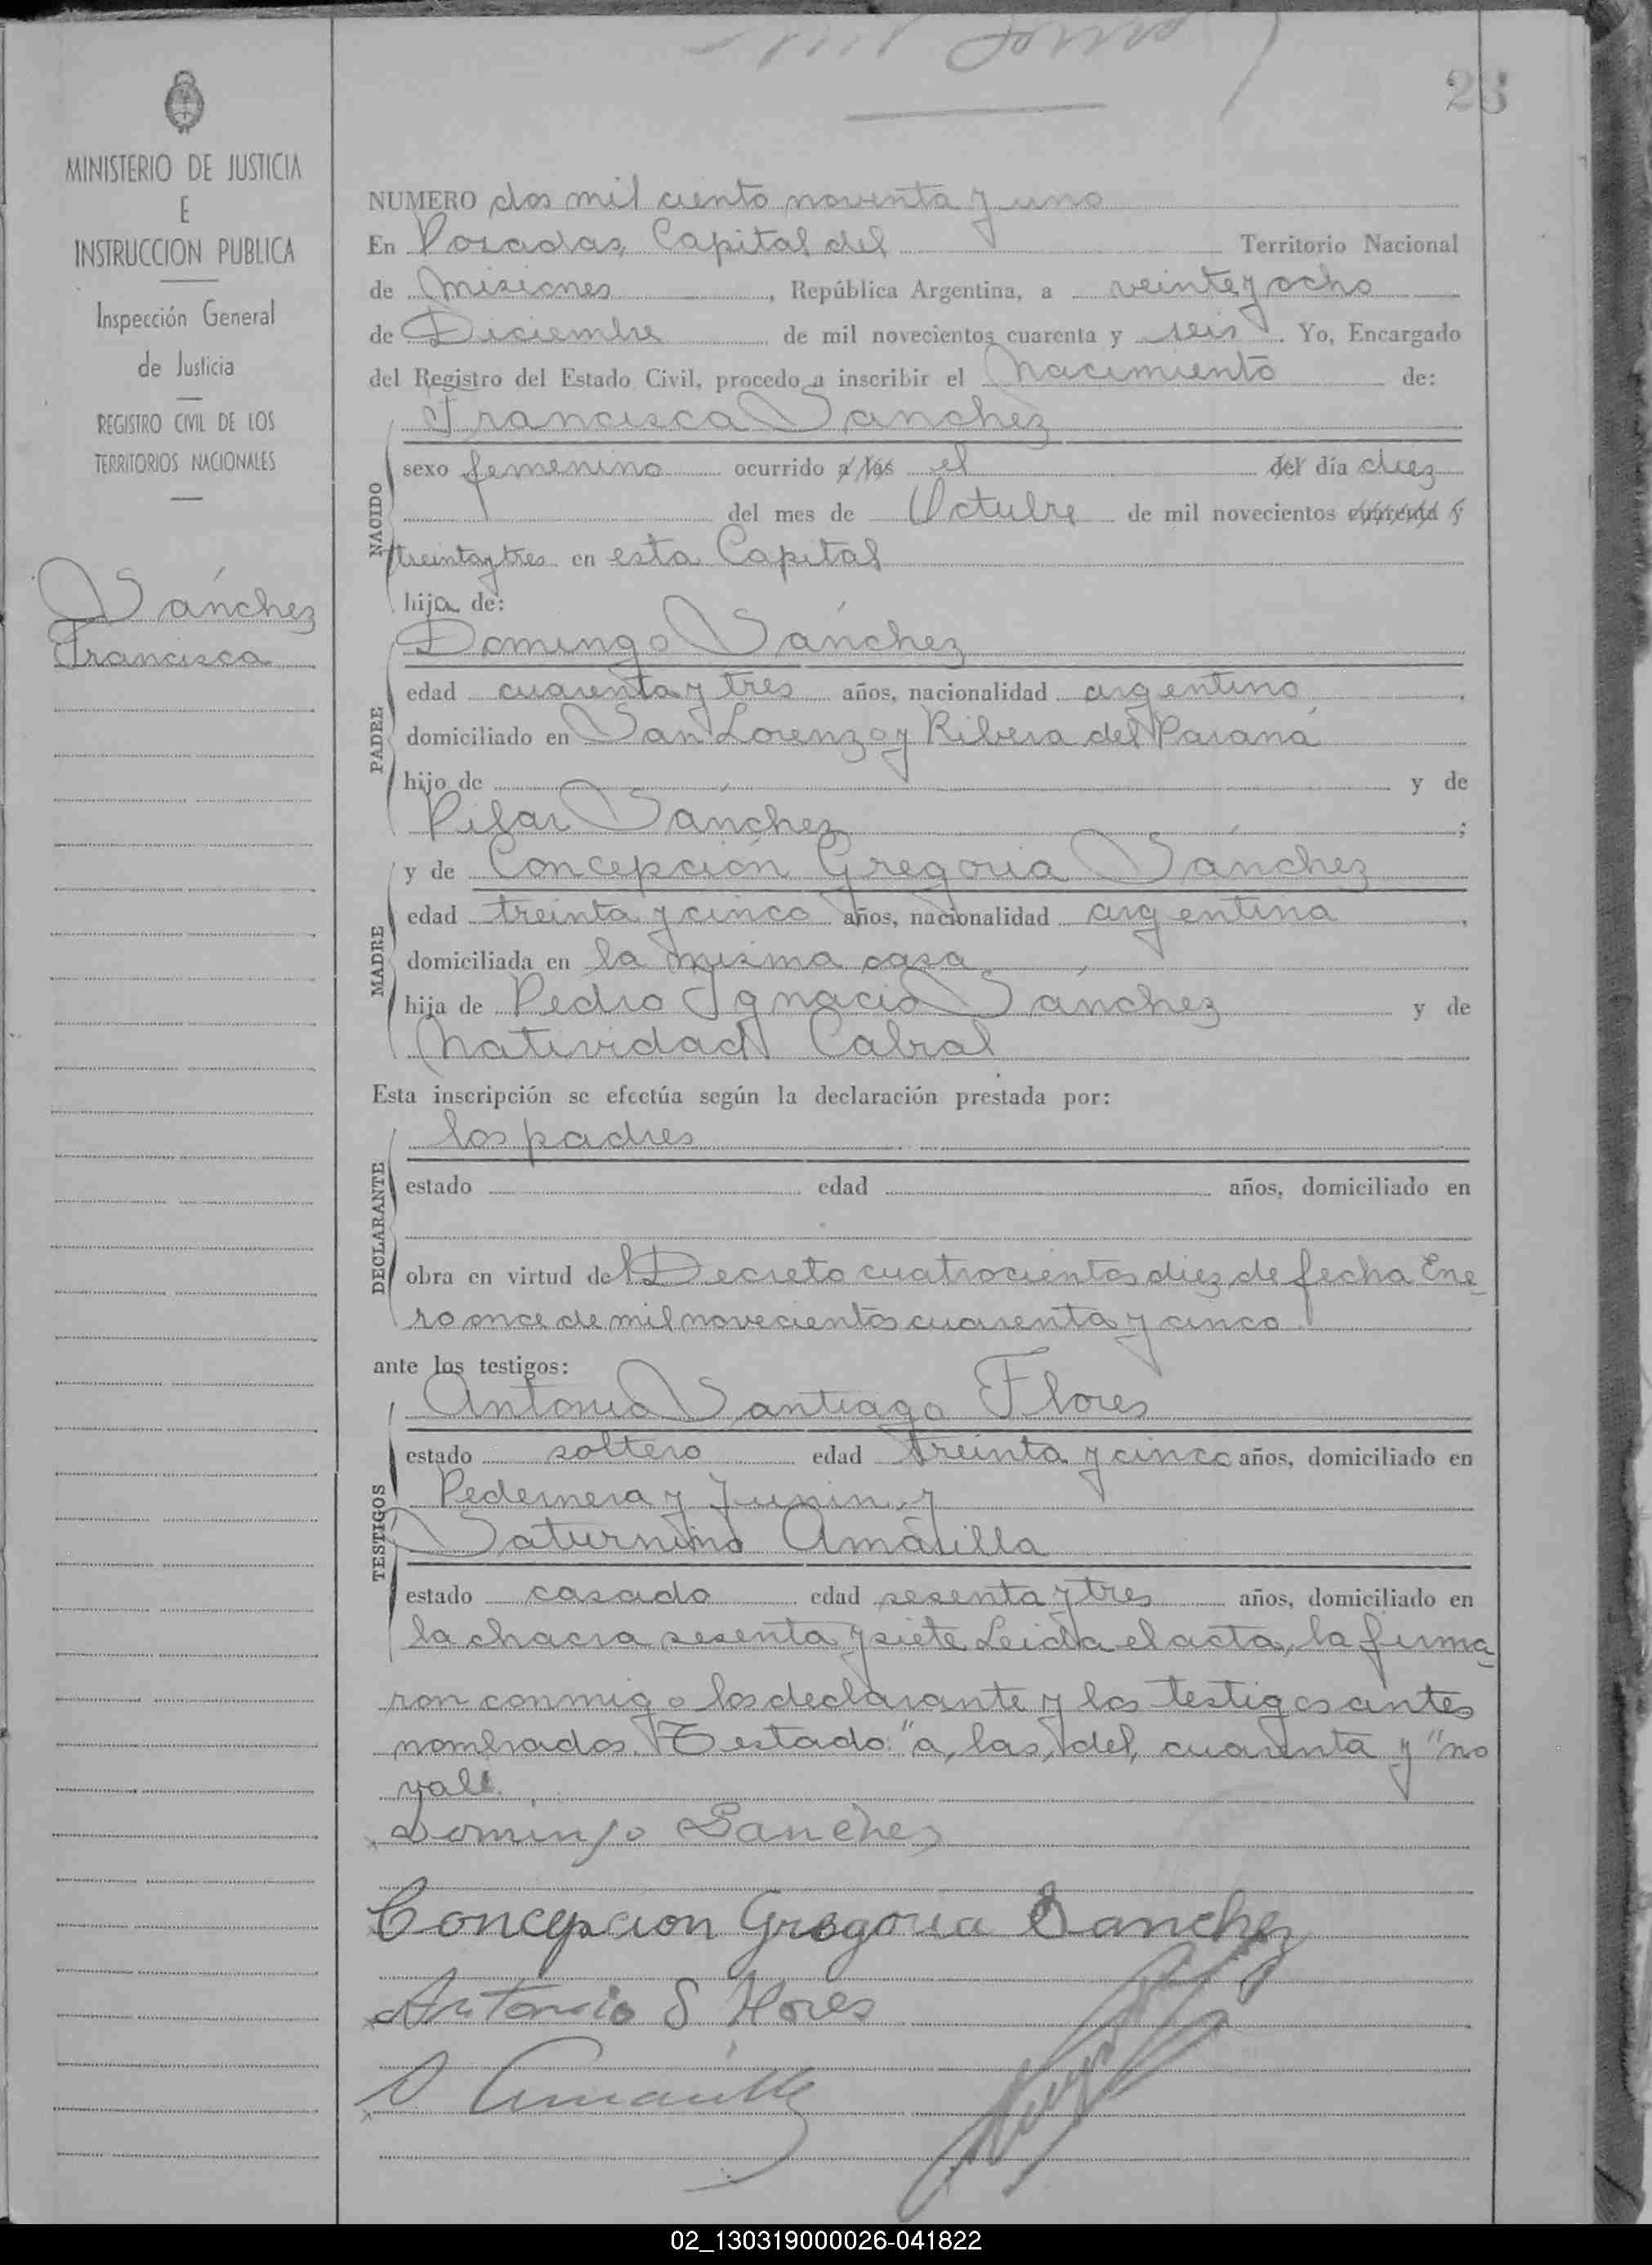 23
MINISTERIO DE JUSTICIA
E
INSTRUCCION PUBLICA
Inspección General
de Justicia
REGISTRO CIVIL DE LOS
TERRITORIOS NACIONALES
Sánchez
Francisca
NUMERO dos mil ciento noventa y uno
En Posadas, Capital del Territorio Nacional
de Misiones, República Argentina, a veinte y ocho
de Diciembre de mil novecientos cuarenta y seis. Yo, Encargado
del Registro del Estado Civil, procedo a inscribir el Nacimiento de:
NACIDO
Francisca Sanchez
sexo femenino ocurrido a las el del día diez
del mes de Octubre de mil novecientos cuarenta y
treinta y tres en esta Capital
hija de:
PADRE
Domingo Sánchez
edad cuarenta y tres años, nacionalidad argentino,
domiciliado en San Lorenzo y Ribera del Paraná
hijo de y de
Pilar Sánchez;
MADRE
y de Concepción Gregoria Sánchez
edad treinta y cinco años, nacionalidad argentina,
domiciliada en la misma casa
hija de Pedro Ignacio Sánchez y de
Natividad Cabral
Esta inscripción se efectúa según la declaración prestada por:
DECLARANTE
los padres
estado edad años, domiciliado en
obra en virtud del Decreto cuatrocientos diez de fecha Ene
ro once de mil novecientos cuarenta y cinco
ante los testigos:
TESTIGOS
Antonio Santiago Flores
estado soltero edad treinta y cinco años, domiciliado en
Pedernera y Junin, y
Saturnino Amarilla
estado casado edad sesenta y tres años, domiciliado en
la chacra sesenta y siete. Leida el acta, la firma
ron conmigo los declarante y los testigos antes
nombrados. Testado: "a, las, del, cuarenta y" no
vale.
Domingo Sanchez
Concepcion Gregoria Sanchez
Antonio S Flores
S. Amarilla
02_130319000026-041822